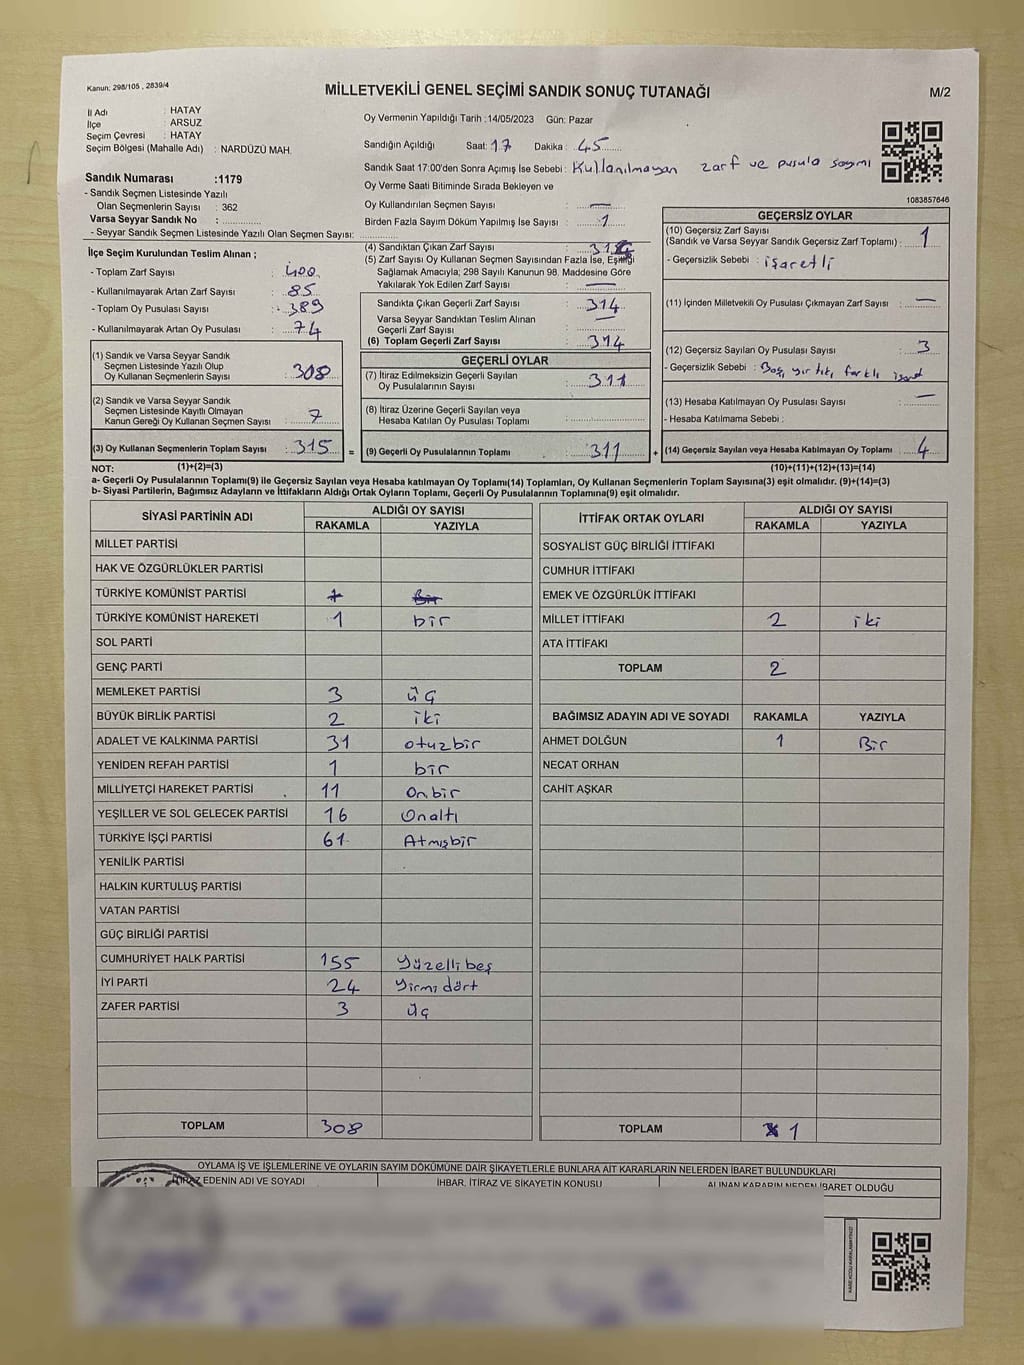 Kanun: 298/105 , 2839/4
MİLLETVEKİLİ GENEL SEÇİMİ SANDIK SONUÇ TUTANAĞI
M/2
İl Adı : HATAY
İlçe : ARSUZ
Seçim Çevresi : HATAY
Seçim Bölgesi (Mahalle Adı) : NARDÜZÜ MAH.
Sandık Numarası :1179
- Sandık Seçmen Listesinde Yazılı
Olan Seçmenlerin Sayısı : 362
Varsa Seyyar Sandık No :
- Seyyar Sandık Seçmen Listesinde Yazılı Olan Seçmen Sayısı:
Oy Vermenin Yapıldığı Tarih :14/05/2023 Gün: Pazar
Sandığın Açıldığı Saat: 17 Dakika : 45
Sandık Saat 17:00'den Sonra Açımış İse Sebebi : Kullanılmayan zarf ve pusula sayımı
Oy Verme Saati Bitiminde Sırada Bekleyen ve
Oy Kullandırılan Seçmen Sayısı : —
Birden Fazla Sayım Döküm Yapılmış İse Sayısı : 1
1083857646
İlçe Seçim Kurulundan Teslim Alınan ;
- Toplam Zarf Sayısı : 400
- Kullanılmayarak Artan Zarf Sayısı : 85
- Toplam Oy Pusulası Sayısı : 389
- Kullanılmayarak Artan Oy Pusulası : 74
(1) Sandık ve Varsa Seyyar Sandık
Seçmen Listesinde Yazılı Olup
Oy Kullanan Seçmenlerin Sayısı : 308
(2) Sandık ve Varsa Seyyar Sandık
Seçmen Listesinde Kayıtlı Olmayan
Kanun Gereği Oy Kullanan Seçmen Sayısı : 7
(3) Oy Kullanan Seçmenlerin Toplam Sayısı : 315 =
(4) Sandıktan Çıkan Zarf Sayısı :
(5) Zarf Sayısı Oy Kullanan Seçmen Sayısından Fazla İse, Eşitliği
Sağlamak Amacıyla; 298 Sayılı Kanunun 98. Maddesine Göre
Yakılarak Yok Edilen Zarf Sayısı : —
Sandıkta Çıkan Geçerli Zarf Sayısı : 314
Varsa Seyyar Sandıktan Teslim Alınan
Geçerli Zarf Sayısı : —
(6) Toplam Geçerli Zarf Sayısı : 314
GEÇERLİ OYLAR
(7) İtiraz Edilmeksizin Geçerli Sayılan
Oy Pusulalarının Sayısı : 311
(8) İtiraz Üzerine Geçerli Sayılan veya
Hesaba Katılan Oy Pusulası Toplamı :
(9) Geçerli Oy Pusulalarının Toplamı : 311 +
GEÇERSİZ OYLAR
(10) Geçersiz Zarf Sayısı
(Sandık ve Varsa Seyyar Sandık Geçersiz Zarf Toplamı) : 1
- Geçersizlik Sebebi : işaretli
(11) İçinden Milletvekili Oy Pusulası Çıkmayan Zarf Sayısı : —
(12) Geçersiz Sayılan Oy Pusulası Sayısı : 3
- Geçersizlik Sebebi : Boş, yırtık, farklı işaret
(13) Hesaba Katılmayan Oy Pusulası Sayısı : —
- Hesaba Katılmama Sebebi :
(14) Geçersiz Sayılan veya Hesaba Katılmayan Oy Toplamı : 4
NOT: (1)+(2)=(3) (10)+(11)+(12)+(13)=(14)
a- Geçerli Oy Pusulalarının Toplamı(9) ile Geçersiz Sayılan veya Hesaba katılmayan Oy Toplamı(14) Toplamları, Oy Kullanan Seçmenlerin Toplam Sayısına(3) eşit olmalıdır. (9)+(14)=(3)
b- Siyasi Partilerin, Bağımsız Adayların ve İttifakların Aldığı Ortak Oyların Toplamı, Geçerli Oy Pusulalarının Toplamına(9) eşit olmalıdır.
SİYASİ PARTİNİN ADI ALDIĞI OY SAYISI
RAKAMLA YAZIYLA
MİLLET PARTİSİ
HAK VE ÖZGÜRLÜKLER PARTİSİ
TÜRKİYE KOMÜNİST PARTİSİ
TÜRKİYE KOMÜNİST HAREKETİ 1 bir
SOL PARTİ
GENÇ PARTİ
MEMLEKET PARTİSİ 3 üç
BÜYÜK BİRLİK PARTİSİ 2 iki
ADALET VE KALKINMA PARTİSİ 31 otuzbir
YENİDEN REFAH PARTİSİ 1 bir
MİLLİYETÇİ HAREKET PARTİSİ 11 Onbir
YEŞİLLER VE SOL GELECEK PARTİSİ 16 Onaltı
TÜRKİYE İŞÇİ PARTİSİ 61 Atmışbir
YENİLİK PARTİSİ
HALKIN KURTULUŞ PARTİSİ
VATAN PARTİSİ
GÜÇ BİRLİĞİ PARTİSİ
CUMHURİYET HALK PARTİSİ 155 Yüzellibeş
İYİ PARTİ 24 Yirmidört
ZAFER PARTİSİ 3 üç
TOPLAM 308
İTTİFAK ORTAK OYLARI ALDIĞI OY SAYISI
RAKAMLA YAZIYLA
SOSYALİST GÜÇ BİRLİĞİ İTTİFAKI
CUMHUR İTTİFAKI
EMEK VE ÖZGÜRLÜK İTTİFAKI
MİLLET İTTİFAKI 2 iki
ATA İTTİFAKI
TOPLAM 2
BAĞIMSIZ ADAYIN ADI VE SOYADI RAKAMLA YAZIYLA
AHMET DOLĞUN 1 Bir
NECAT ORHAN
CAHİT AŞKAR
TOPLAM 1
OYLAMA İŞ VE İŞLEMLERİNE VE OYLARIN SAYIM DÖKÜMÜNE DAİR ŞİKAYETLERLE BUNLARA AİT KARARLARIN NELERDEN İBARET BULUNDUKLARI
İTİRAZ EDENİN ADI VE SOYADI İHBAR, İTİRAZ VE ŞİKAYETİN KONUSU ALINAN KARARIN NEDEN İBARET OLDUĞU